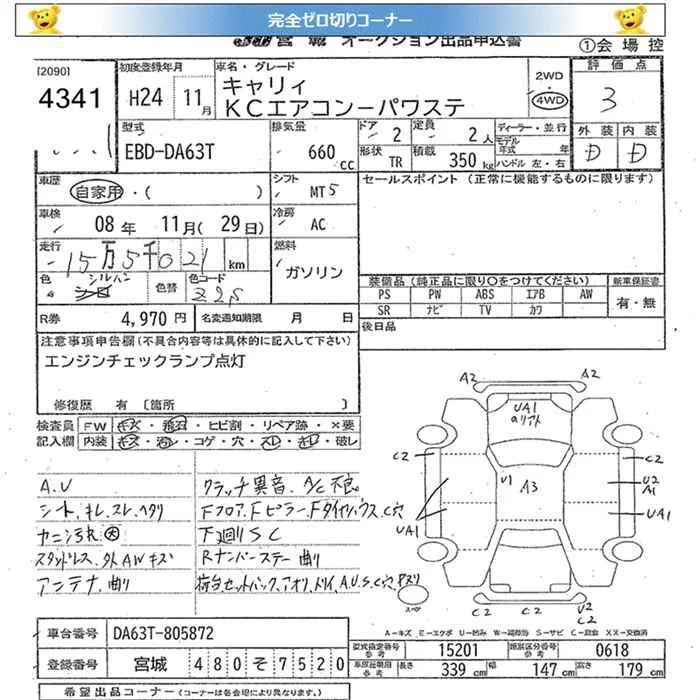 完全ゼロ切りコーナー
宮城 オークション出品申込書
①会場控
[2090]
4341
初度登録年月
H24 11月
車名・グレード
キャリィ
KCエアコン－パワステ
2WD
・
4WD
評価点
3
外装 内装
D D
型式
EBD-DA63T
排気量
660 cc
ドア 2
定員 2人
形状 TR
積載 350kg
ディーラー・並行
モデル年式 年
ハンドル 左・右
車歴
自家用・( )
シフト
MT5
セールスポイント (正常に機能するものに限ります)
車検
08年 11月(29日)
冷房
AC
走行
15万5千021km
燃料
ガソリン
色
シルバー
色替
色コード
Z2S
装備品(純正品に限り○をつけてください)
新車保証書
PS PW ABS エアB AW
SR ナビ TV カワ
有・無
R券 4,970円
名変通知期限 月 日
後日品
注意事項申告欄(不具合内容等は具体的に記入して下さい)
エンジンチェックランプ点灯
修復歴 有 〔箇所 〕
検査員 FW キズ・飛石・ヒビ割・リペア跡・×要
記入欄 内装 キズ・汚レ・コゲ・穴・スレ・キレ・破レ
A.U
シート、キレ、スレ、ヘタリ
カーニシ汚れ 大
スタッドレス、外AWキズ
アンテナ曲り
クラッチ異音、A/C不良
Fフロア、Fピラー、Fタイヤハウス、C穴
下廻りSC
Rナンバーステー曲り
荷台セットバック、アオリ、トリイ、A.U.S.C穴
A2
A2
UA1
C2
C2
U1
A3
U2
A1
UA1
UA1
スペア
C2
C2
U2
C2
A－キズ E－エクボ U－凹み W－補修跡 S－サビ C－腐食 XX－交換済
車台番号 DA63T-805872
登録番号 宮城 480そ7520
型式指定番号 参考 15201
類別区分番号 参考 0618
長さ 339cm 幅 147cm 高さ 179cm
希望出品コーナー(コーナーは各会場により異なります。)